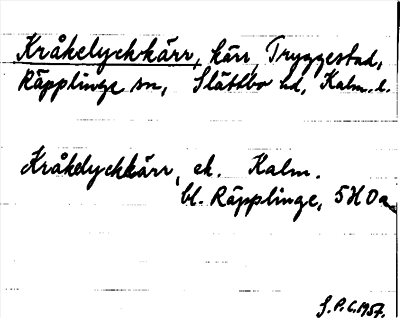 Kråkelyckkärr, kärr, Tryggestad,
Räpplinge sn, Slättbo hd, Kalm. l.
Kråkelyckkärr, ek. Kalm.
bl. Räpplinge, 5H0a
S.P.C. 1957.